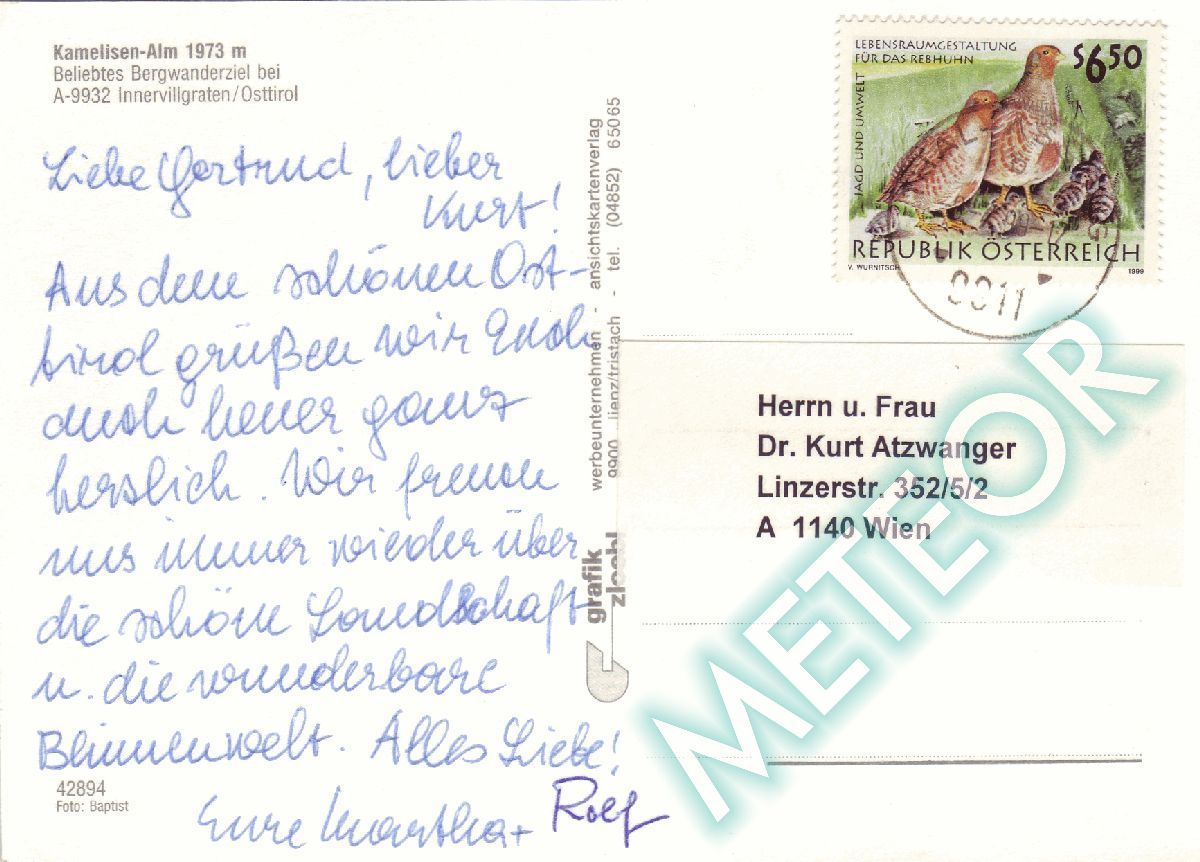 Kamelisen-Alm 1973 m
Beliebtes Bergwanderziel bei
A-9932 Innervillgraten/Osttirol
Liebe Gertrud, lieber
Kurt!
Aus dem schönen Ost-
tirol grüßen wir Euch
auch heuer ganz
herzlich. Wir freuen
uns immer wieder über
die schöne Landschaft
u. die wunderbare
Blumenwelt. Alles Liebe!
Eure Martha +
Rolf
42894
Foto: Baptist
werbeunternehmen - ansichtskartenverlag
9900 lienz/tristach - tel. (04852) 65065
grafik
zloebl
LEBENSRAUMGESTALTUNG
FÜR DAS REBHUHN
S6.50
JAGD UND UMWELT
REPUBLIK ÖSTERREICH
V. WURNITSCH
1999
0011
Herrn u. Frau
Dr. Kurt Atzwanger
Linzerstr. 352/5/2
A 1140 Wien
METEOR